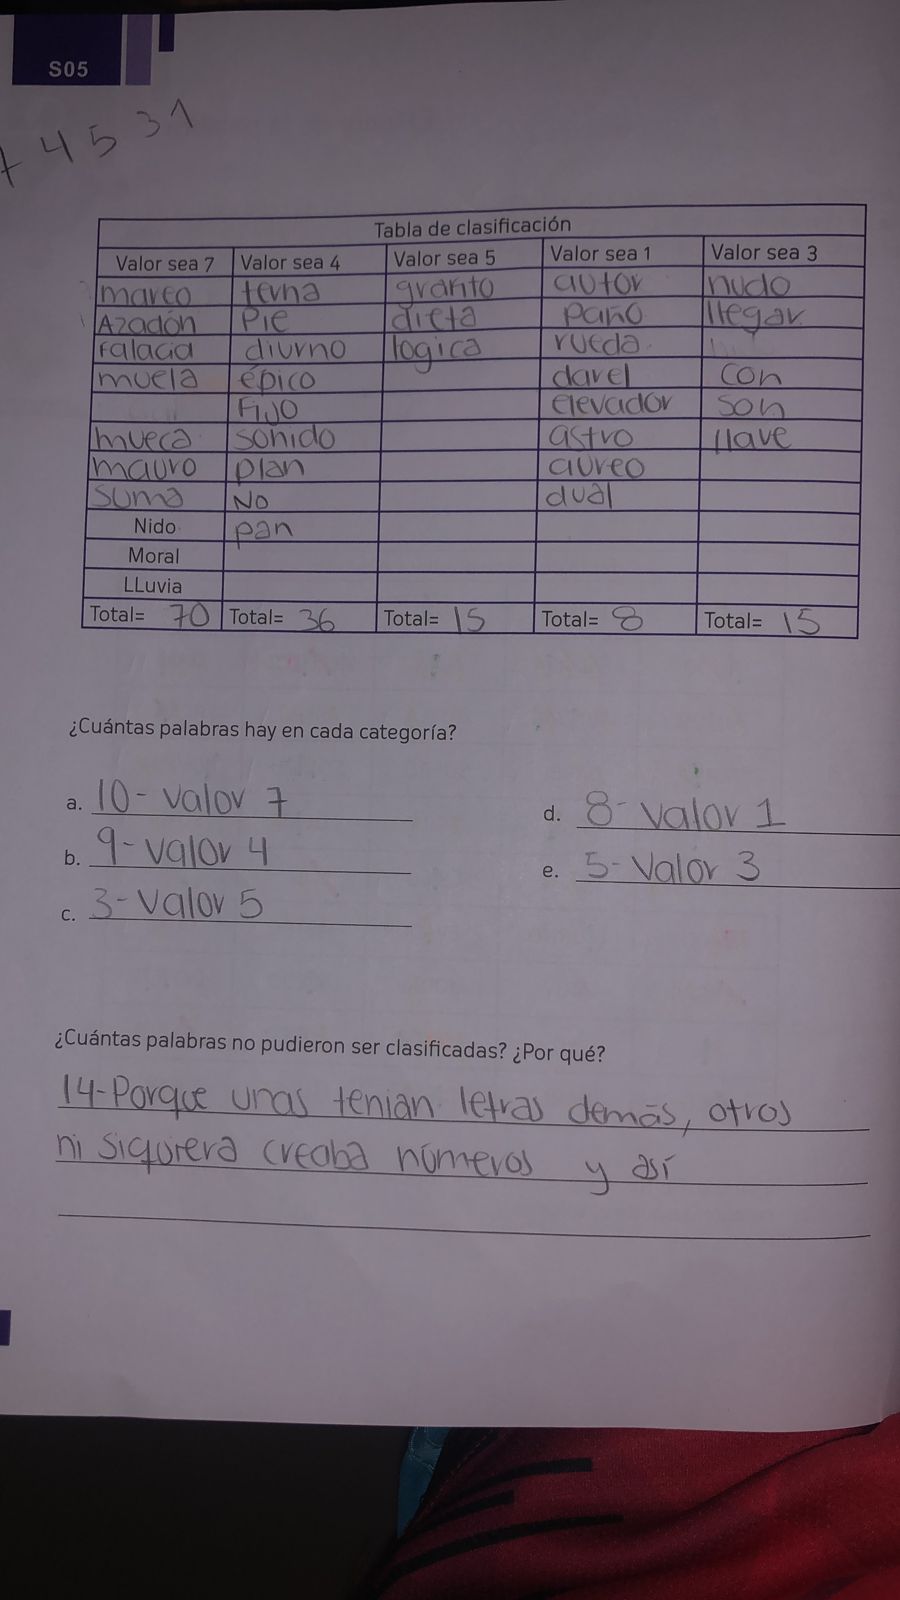 S05
7 4 5 3 1
Tabla de clasificación
Valor sea 7 Valor sea 4 Valor sea 5 Valor sea 1 Valor sea 3
mareo terna granito autor nudo
Azadón Pie dieta paño llegar
Falacia diurno logica rueda
muela épico darel con
Fijo elevador son
mueca sonido astro llave
mauro plan aureo
suma No dual
Nido pan
Moral
LLuvia
Total= 70 Total= 36 Total= 15 Total= 8 Total= 15
¿Cuántas palabras hay en cada categoría?
a. 10- valor 7
d. 8- valor 1
b. 9- valor 4
e. 5- Valor 3
c. 3- Valor 5
¿Cuántas palabras no pudieron ser clasificadas? ¿Por qué?
14-Porque unas tenian letras demás, otros
ni siquiera creaba números y así